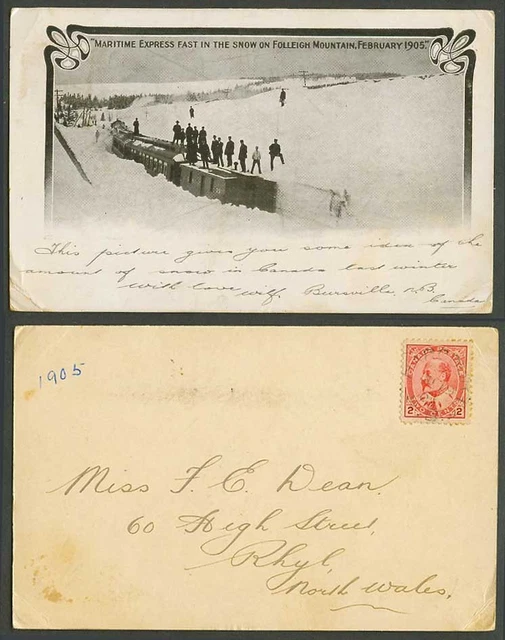 "MARITIME EXPRESS FAST IN THE SNOW ON FOLLEIGH MOUNTAIN, FEBRUARY 1905."
This picture gives you some idea of the
amount of snow in Canada last winter
With love wilf. Bursville, N.B.
Canada
1905
2 2
Miss F. E. Dean.
60 High Street,
Rhyl,
North Wales,